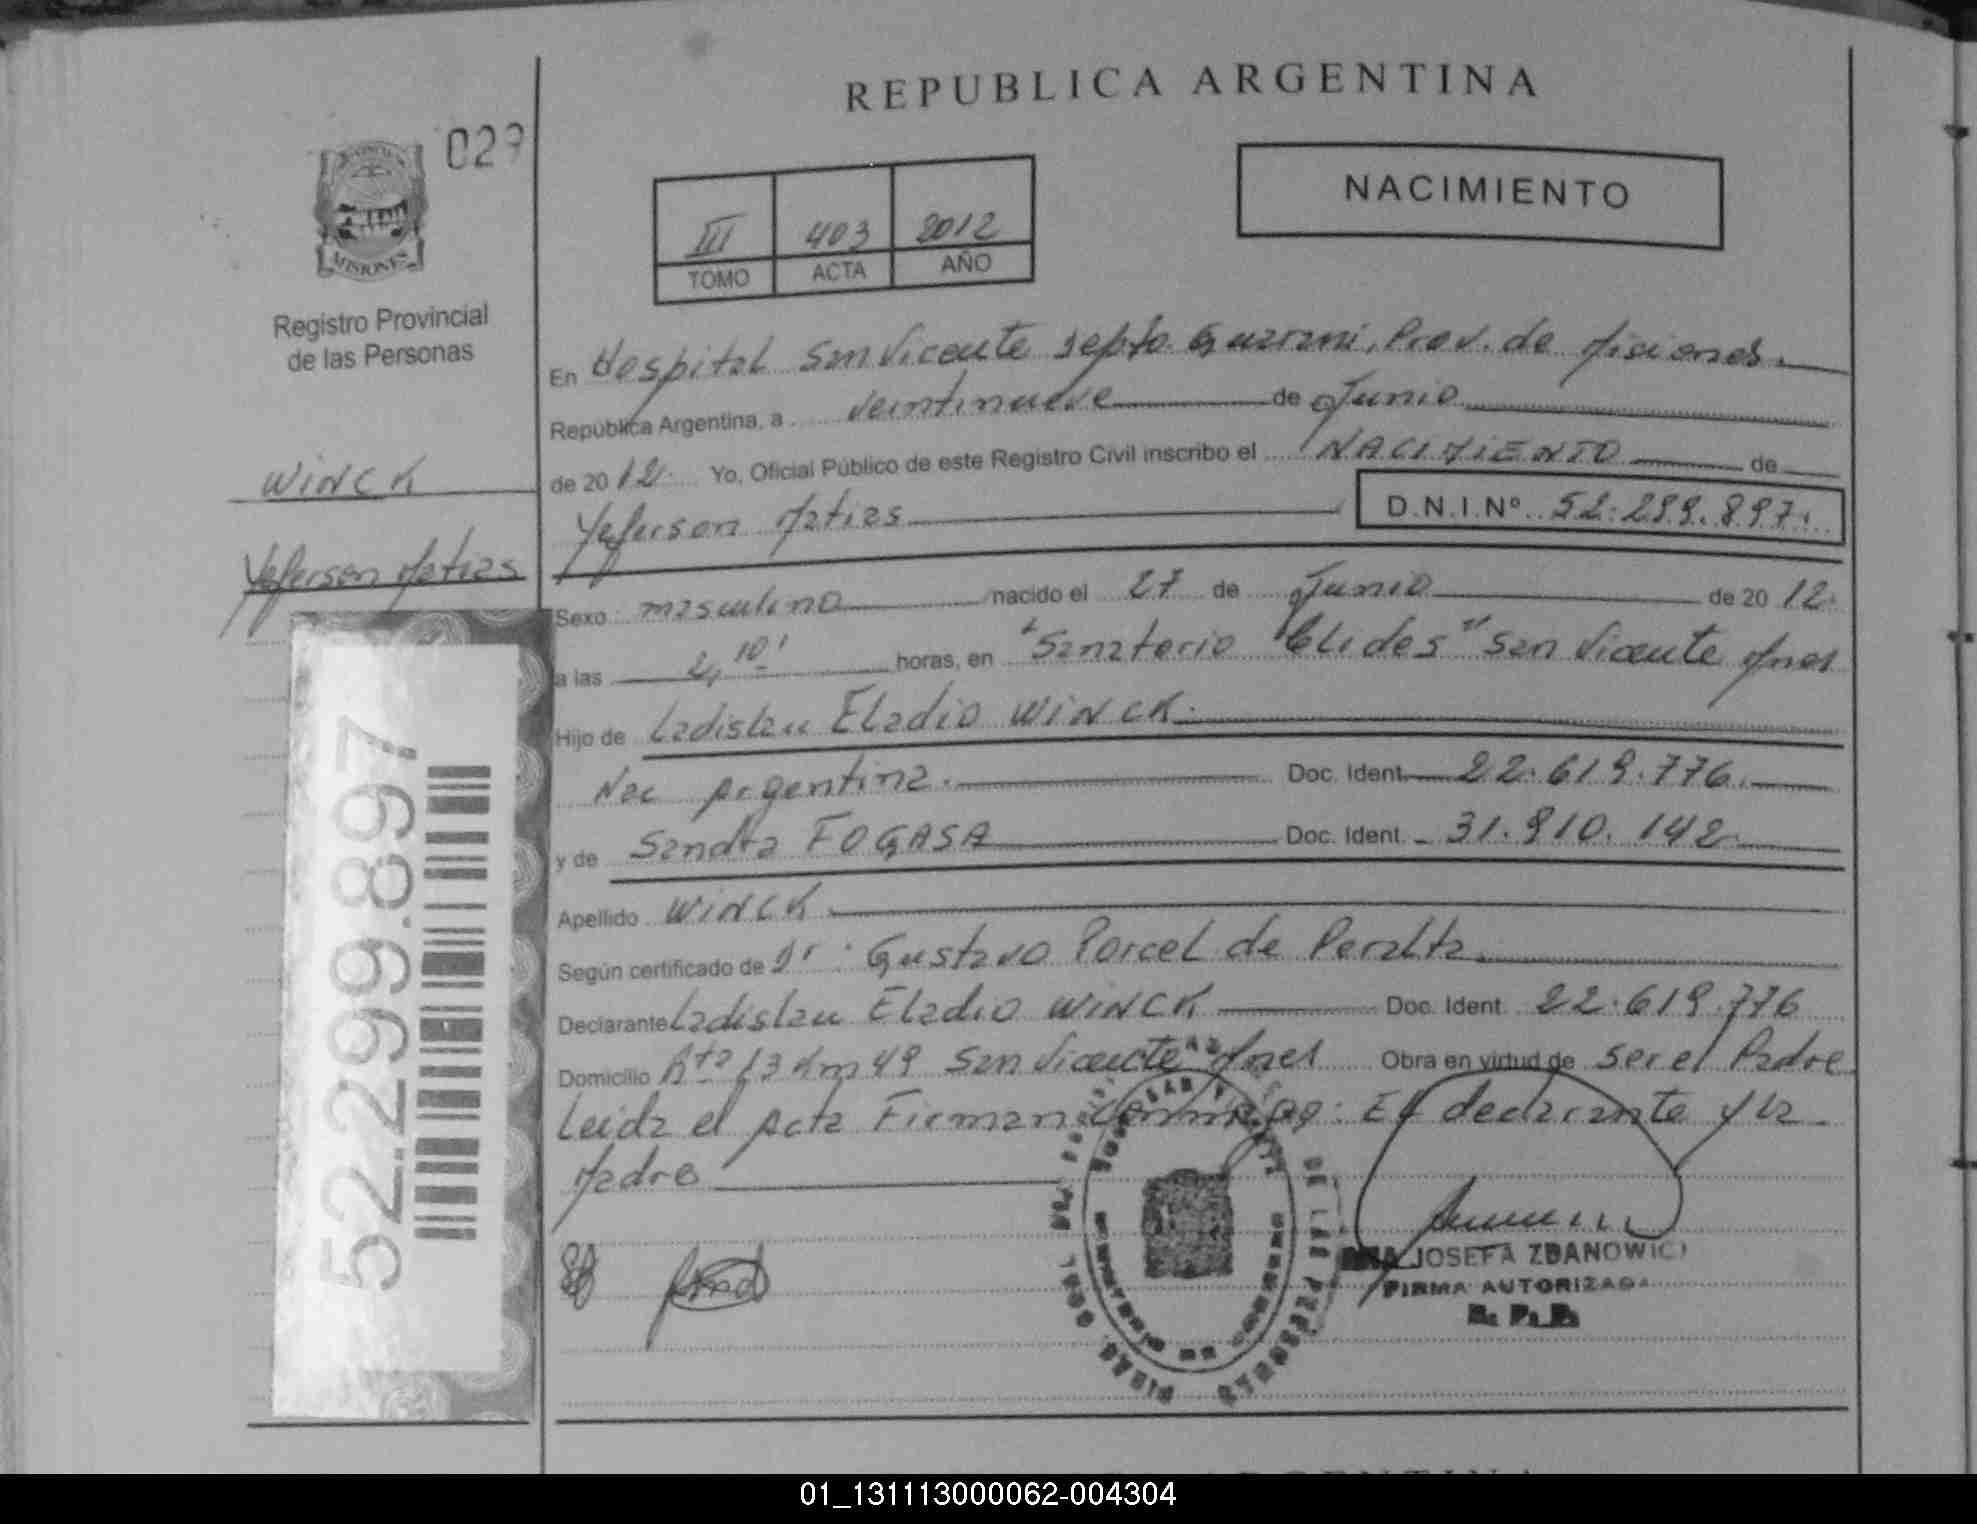 REPUBLICA ARGENTINA
029
NACIMIENTO
III 403 2012
TOMO ACTA AÑO
MISIONES
Registro Provincial
de las Personas
WINCK
Yeferson Matias
52.299.897
En Hospital San Vicente Depto. Guarani, Prov. de Misiones.
República Argentina, a veintinueve de Junio
de 2012. Yo, Oficial Público de este Registro Civil inscribo el NACIMIENTO de
Yeferson Matias D.N.I.Nº 52.299.897.
Sexo masculino nacido el 27 de Junio de 2012.
a las 2,10' horas, en "Sanatorio Clides" San Vicente Mnes
Hijo de Ladislau Eladio WINCK.
Nac Argentina. Doc. Ident. 22.619.776.
y de Sandra FOGASA Doc. Ident. 31.810.142
Apellido WINCK
Según certificado de Dr. Gustavo Porcel de Peralta.
Declarante Ladislau Eladio WINCK Doc. Ident. 22.619.776
Domicilio Rta 13 Km 49 San Vicente Mnes Obra en virtud de ser el Padre
Leida el Acta Firman Conmigo: El declarante y la
Madre
JOSEFA ZDANOWICZ
FIRMA AUTORIZADA
R. P. P.
DE LAS PERSONAS
01_131113000062-004304